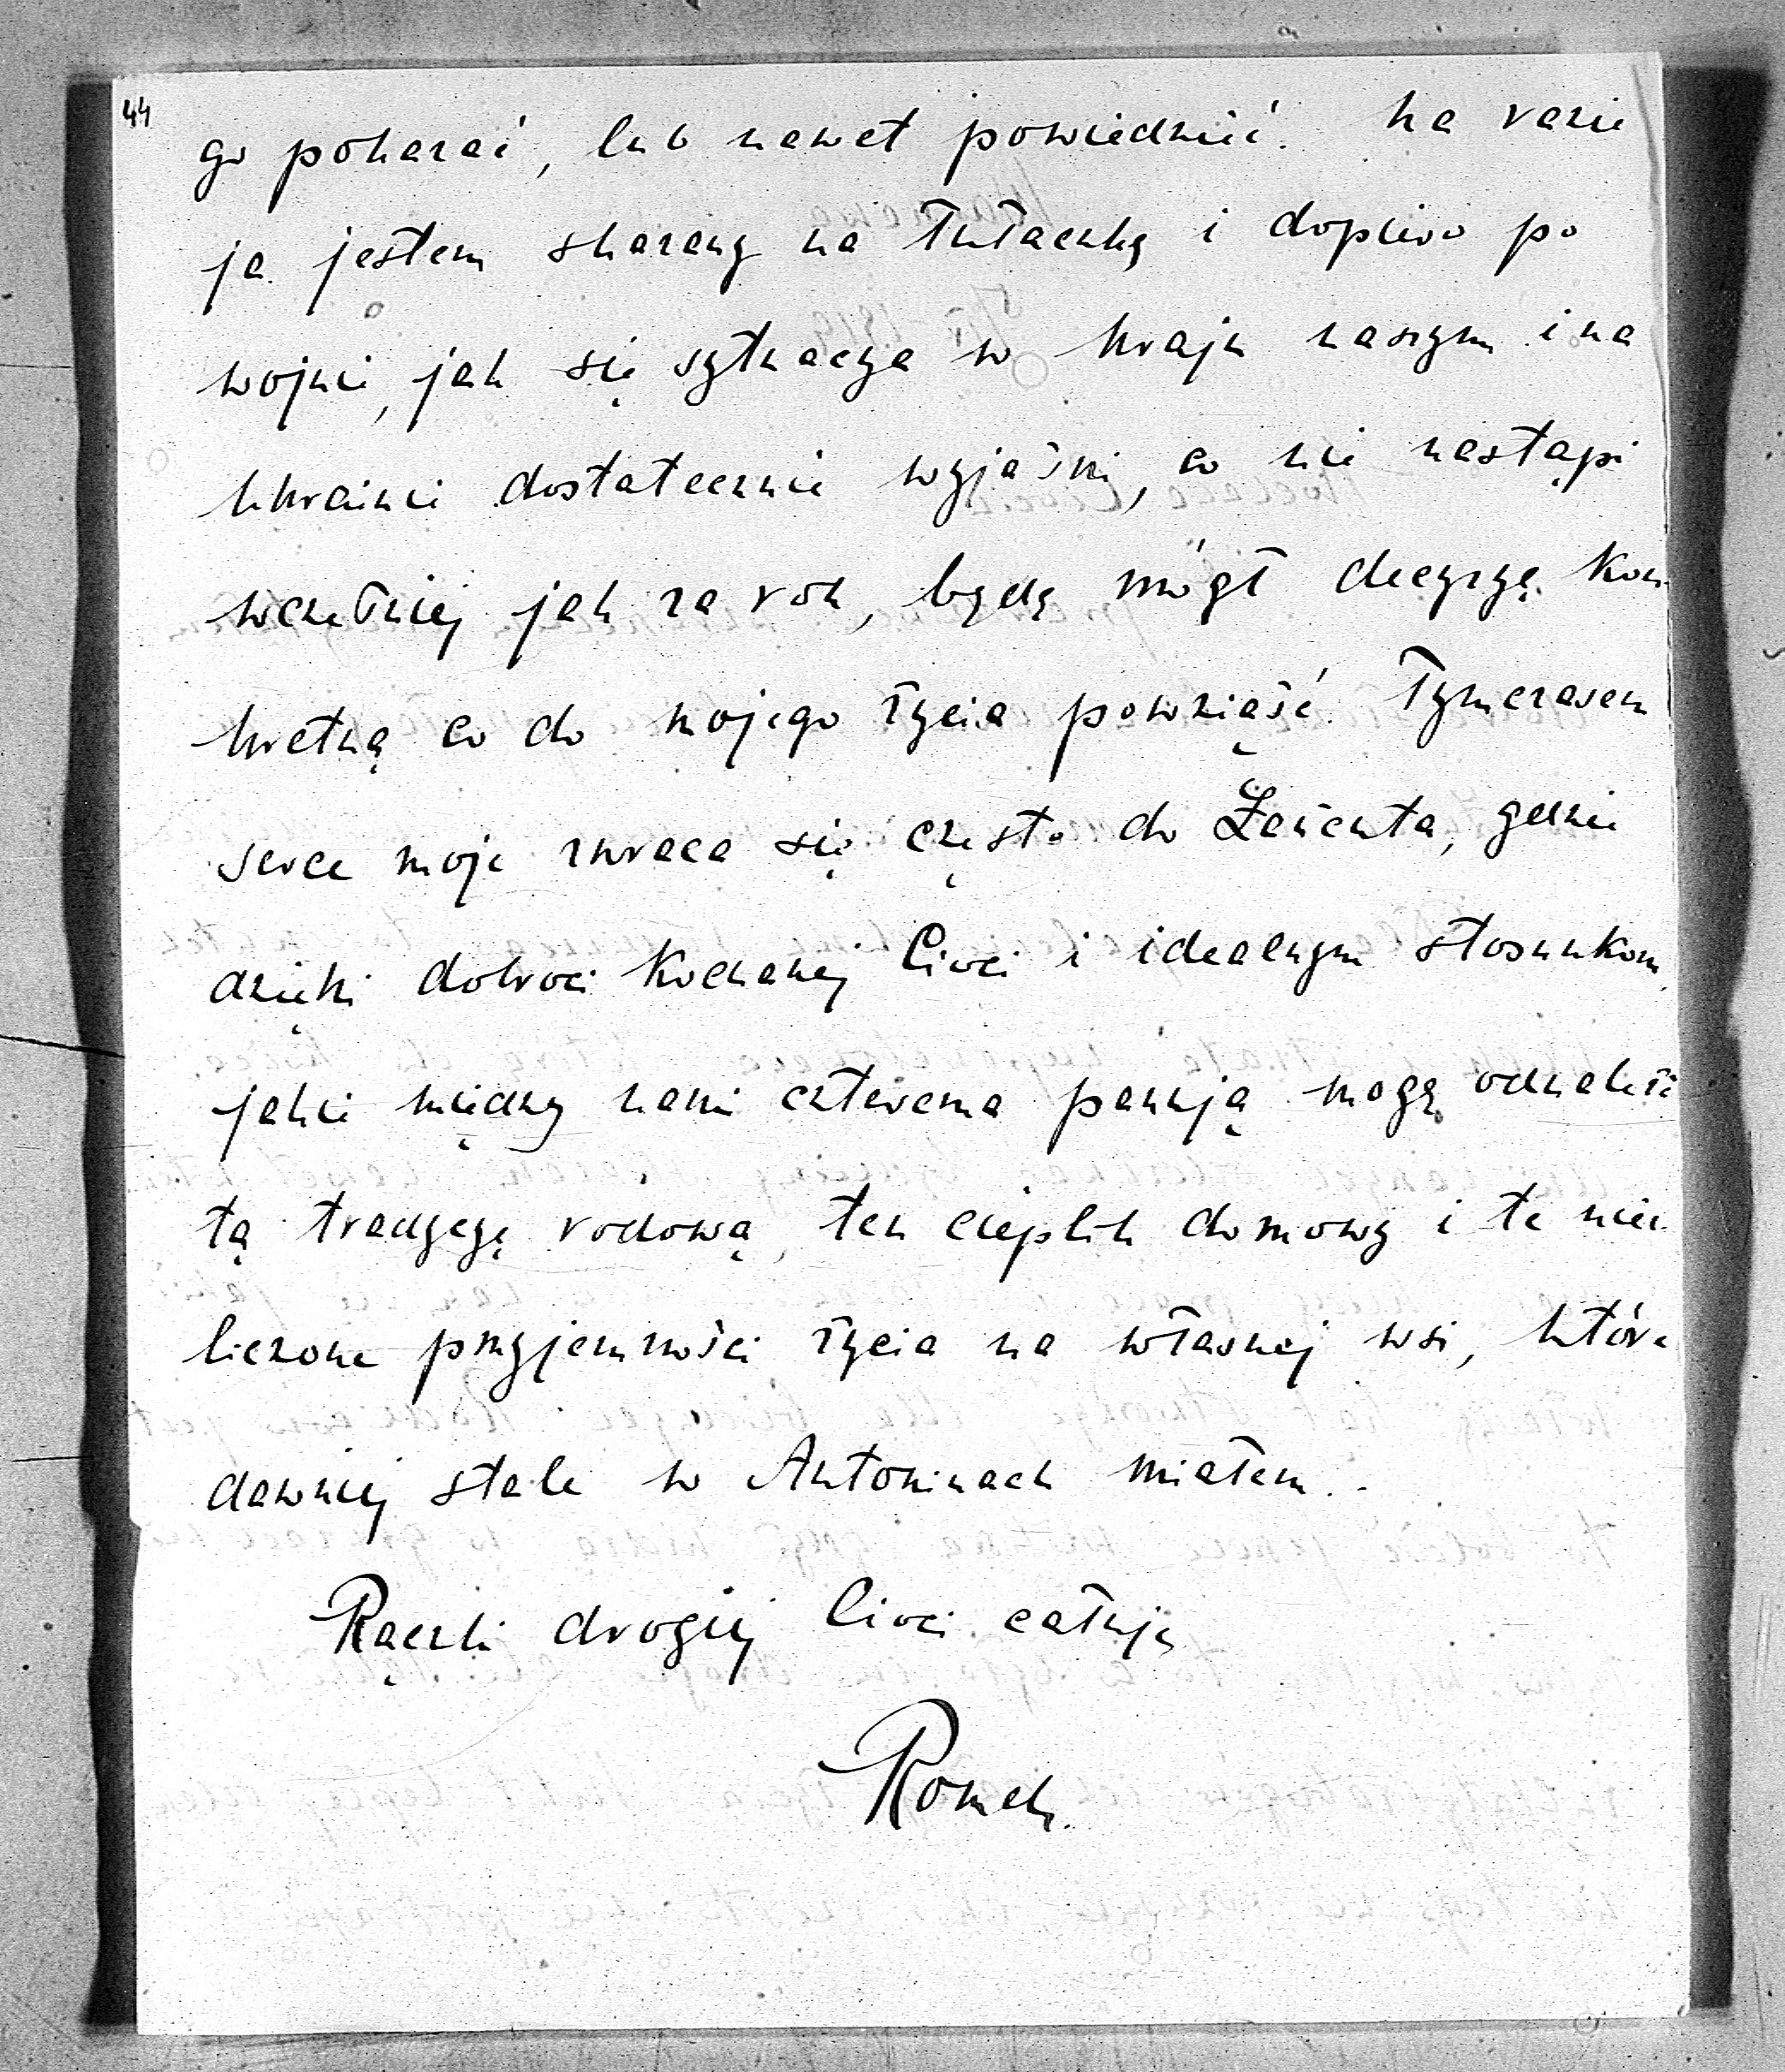 44
go pokazać, lub nawet powiedzieć. Na razie
ja jestem skazany na tułaczkę i dopiero po
wojnie, jak się sytuacya w kraju naszym i na
Ukrainie dostatecznie wyjaśni, co nie nastąpi
wcześniej jak za rok, będę mógł decyzyę kon-
kretną co do mojego życia powziąść. Tymczasem
serce moje zwraca się często do Łańcuta, gdzie
dzięki dobroci Kochanej Cioci i idealnym stosunkom,
jakie między nami czterema panują mogę odnaleść
tą tradycyę rodową, ten cieplik domowy i te nie-
liczone przyjemności życia na własnej wsi, które
dawniej stale w Antoninach miałem.
Rączki drogiej Cioci całuję
Romek.